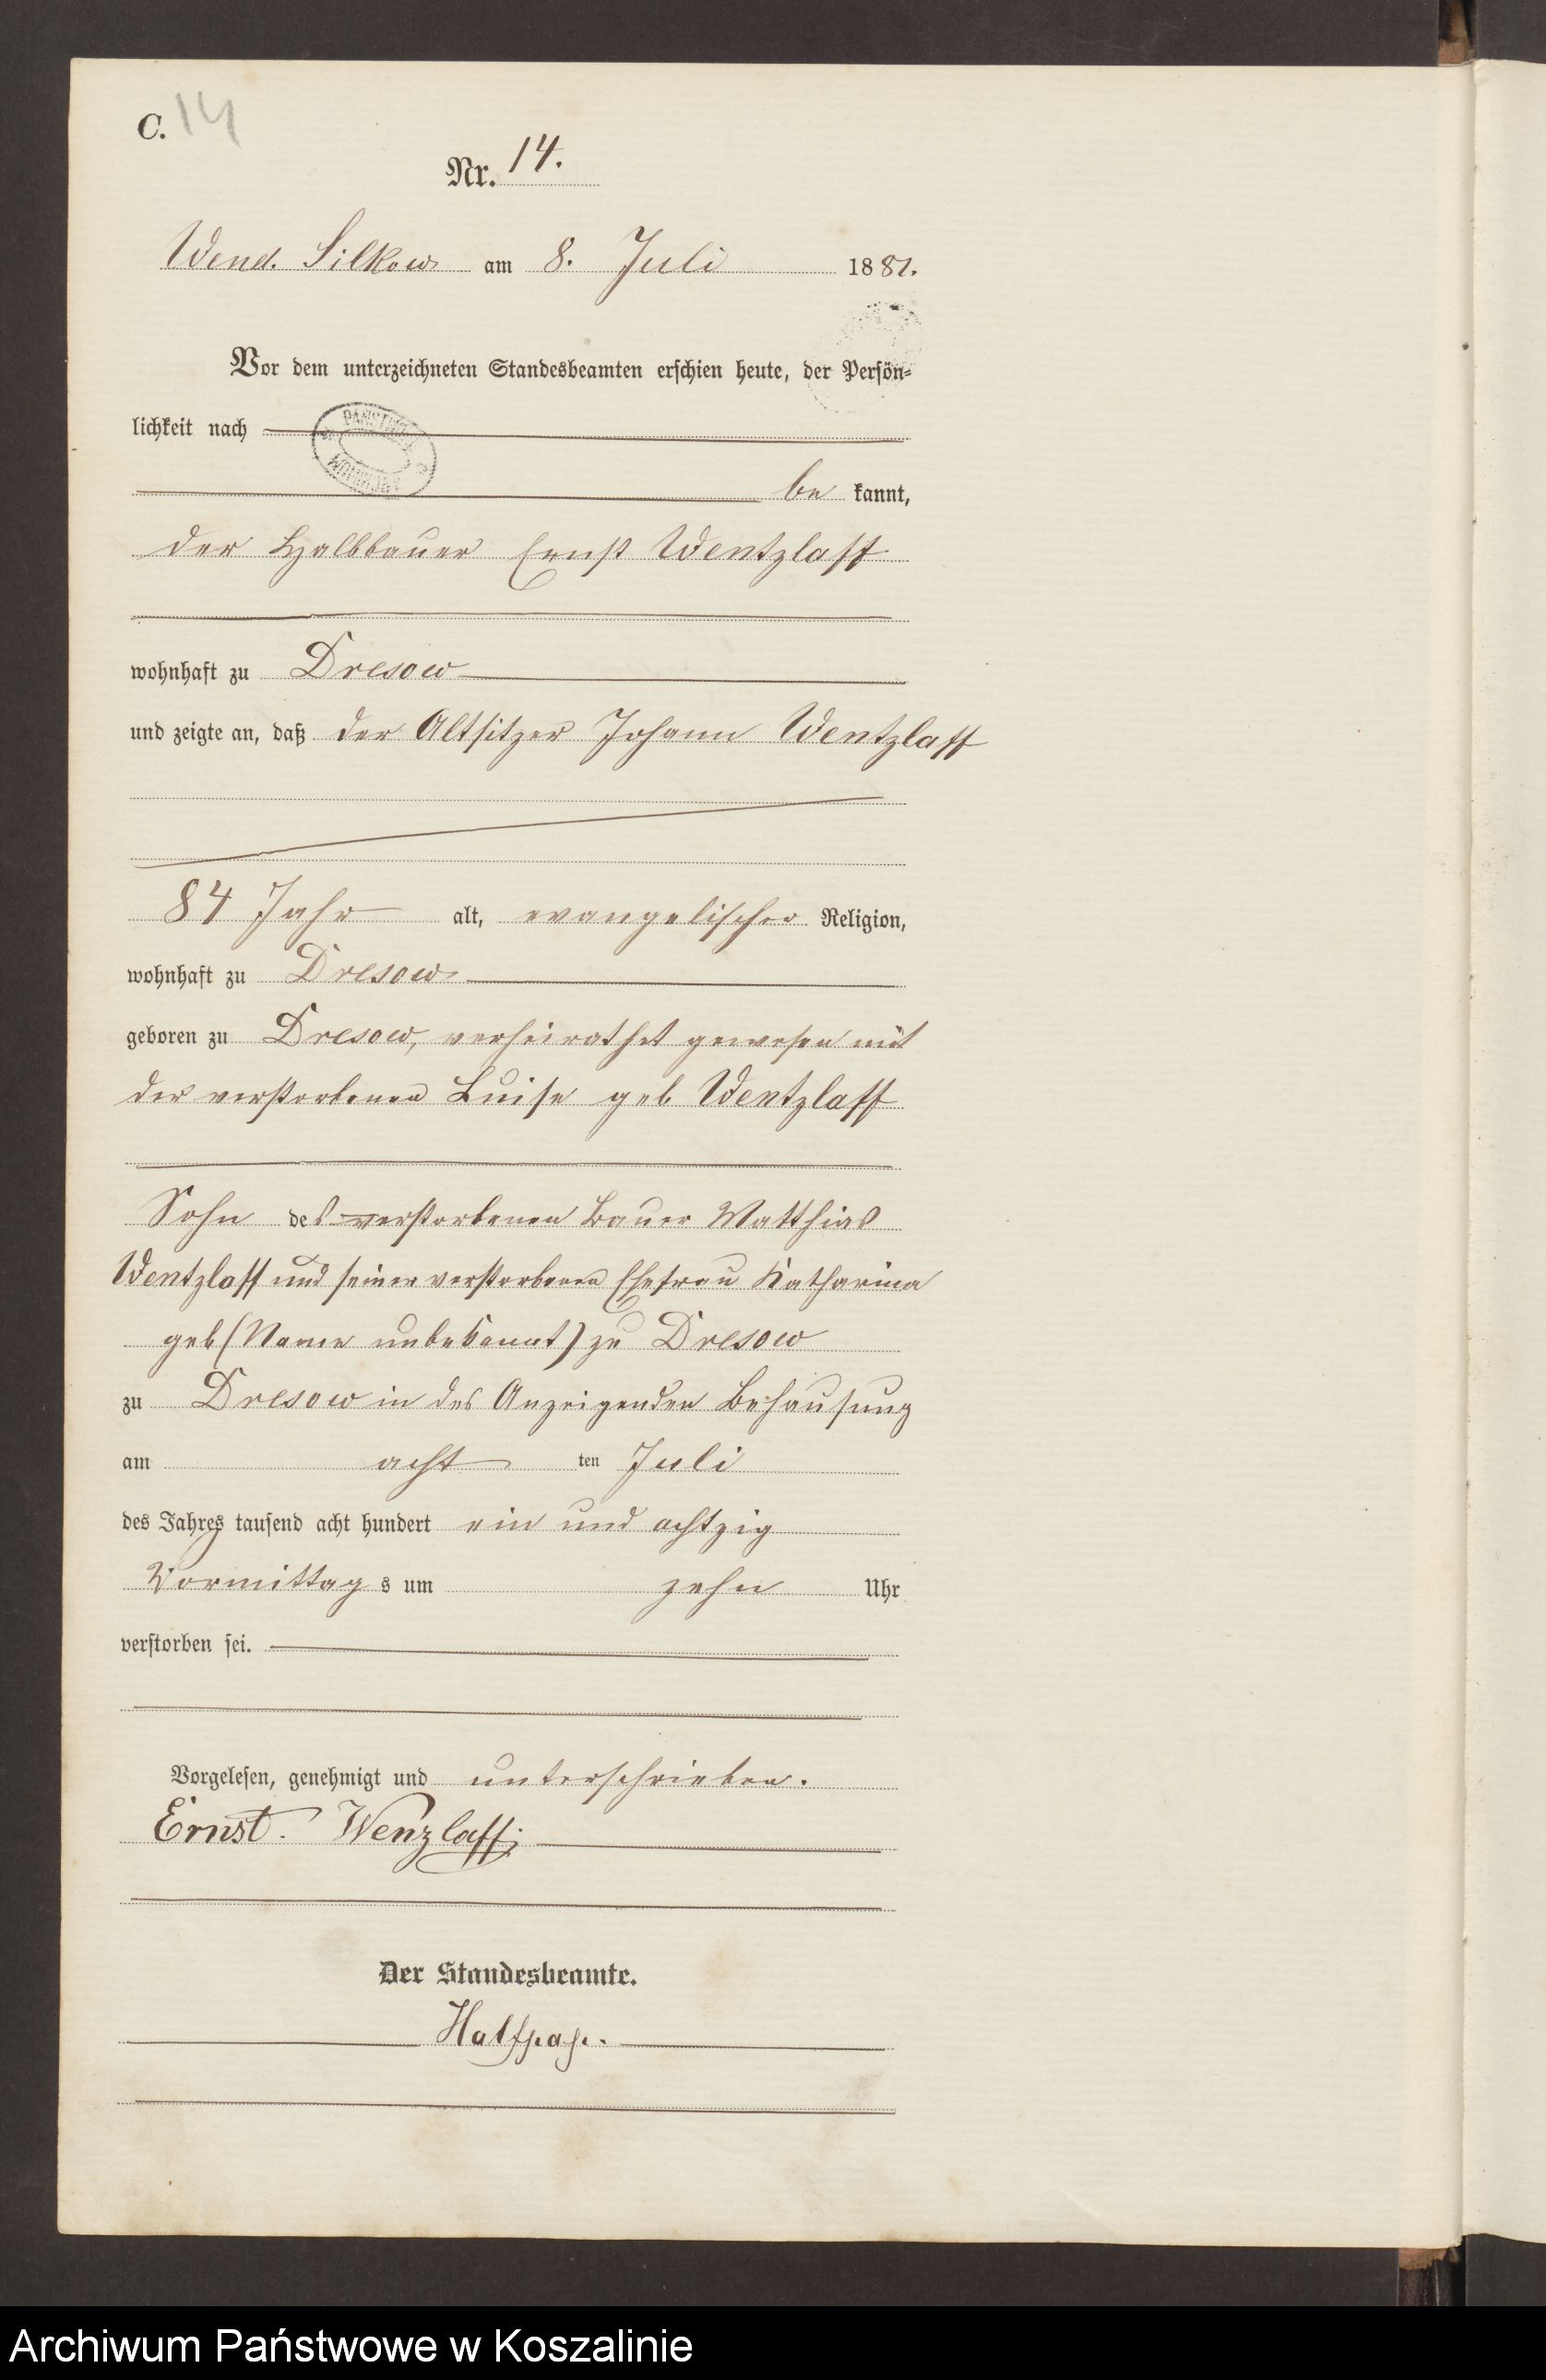 C. 14
Nr. 14.
Wend. Silkow am 8. Juli 1881.
Vor dem unterzeichneten Standesbeamten erschien heute, der Persön-
lichkeit nach
be kannt,
der Halbbauer Ernst Wentzlaff
wohnhaft zu Dresow
und zeigte an, daß der Altsitzer Johann Wentzlaff
84 Jahr alt, evangelischer Religion,
wohnhaft zu Dresow
geboren zu Dresow, verheirathet gewesen mit
der verstorbenen Luise geb Wentzlaff
Sohn des verstorbenen Bauer Matthias
Wentzlaff und seiner verstorbenen Ehefrau Katharina
geb (Name unbekannt) zu Dresow
zu Dresow in des Anzeigenden Behausung
am acht ten Juli
des Jahres tausend acht hundert ein und achtzig
Vormittag s um zehn Uhr
verstorben sei.
Vorgelesen, genehmigt und unterschrieben.
Ernst. Wenzlaff.
Der Standesbeamte.
Halfpap.
Archiwum Państwowe w Koszalinie